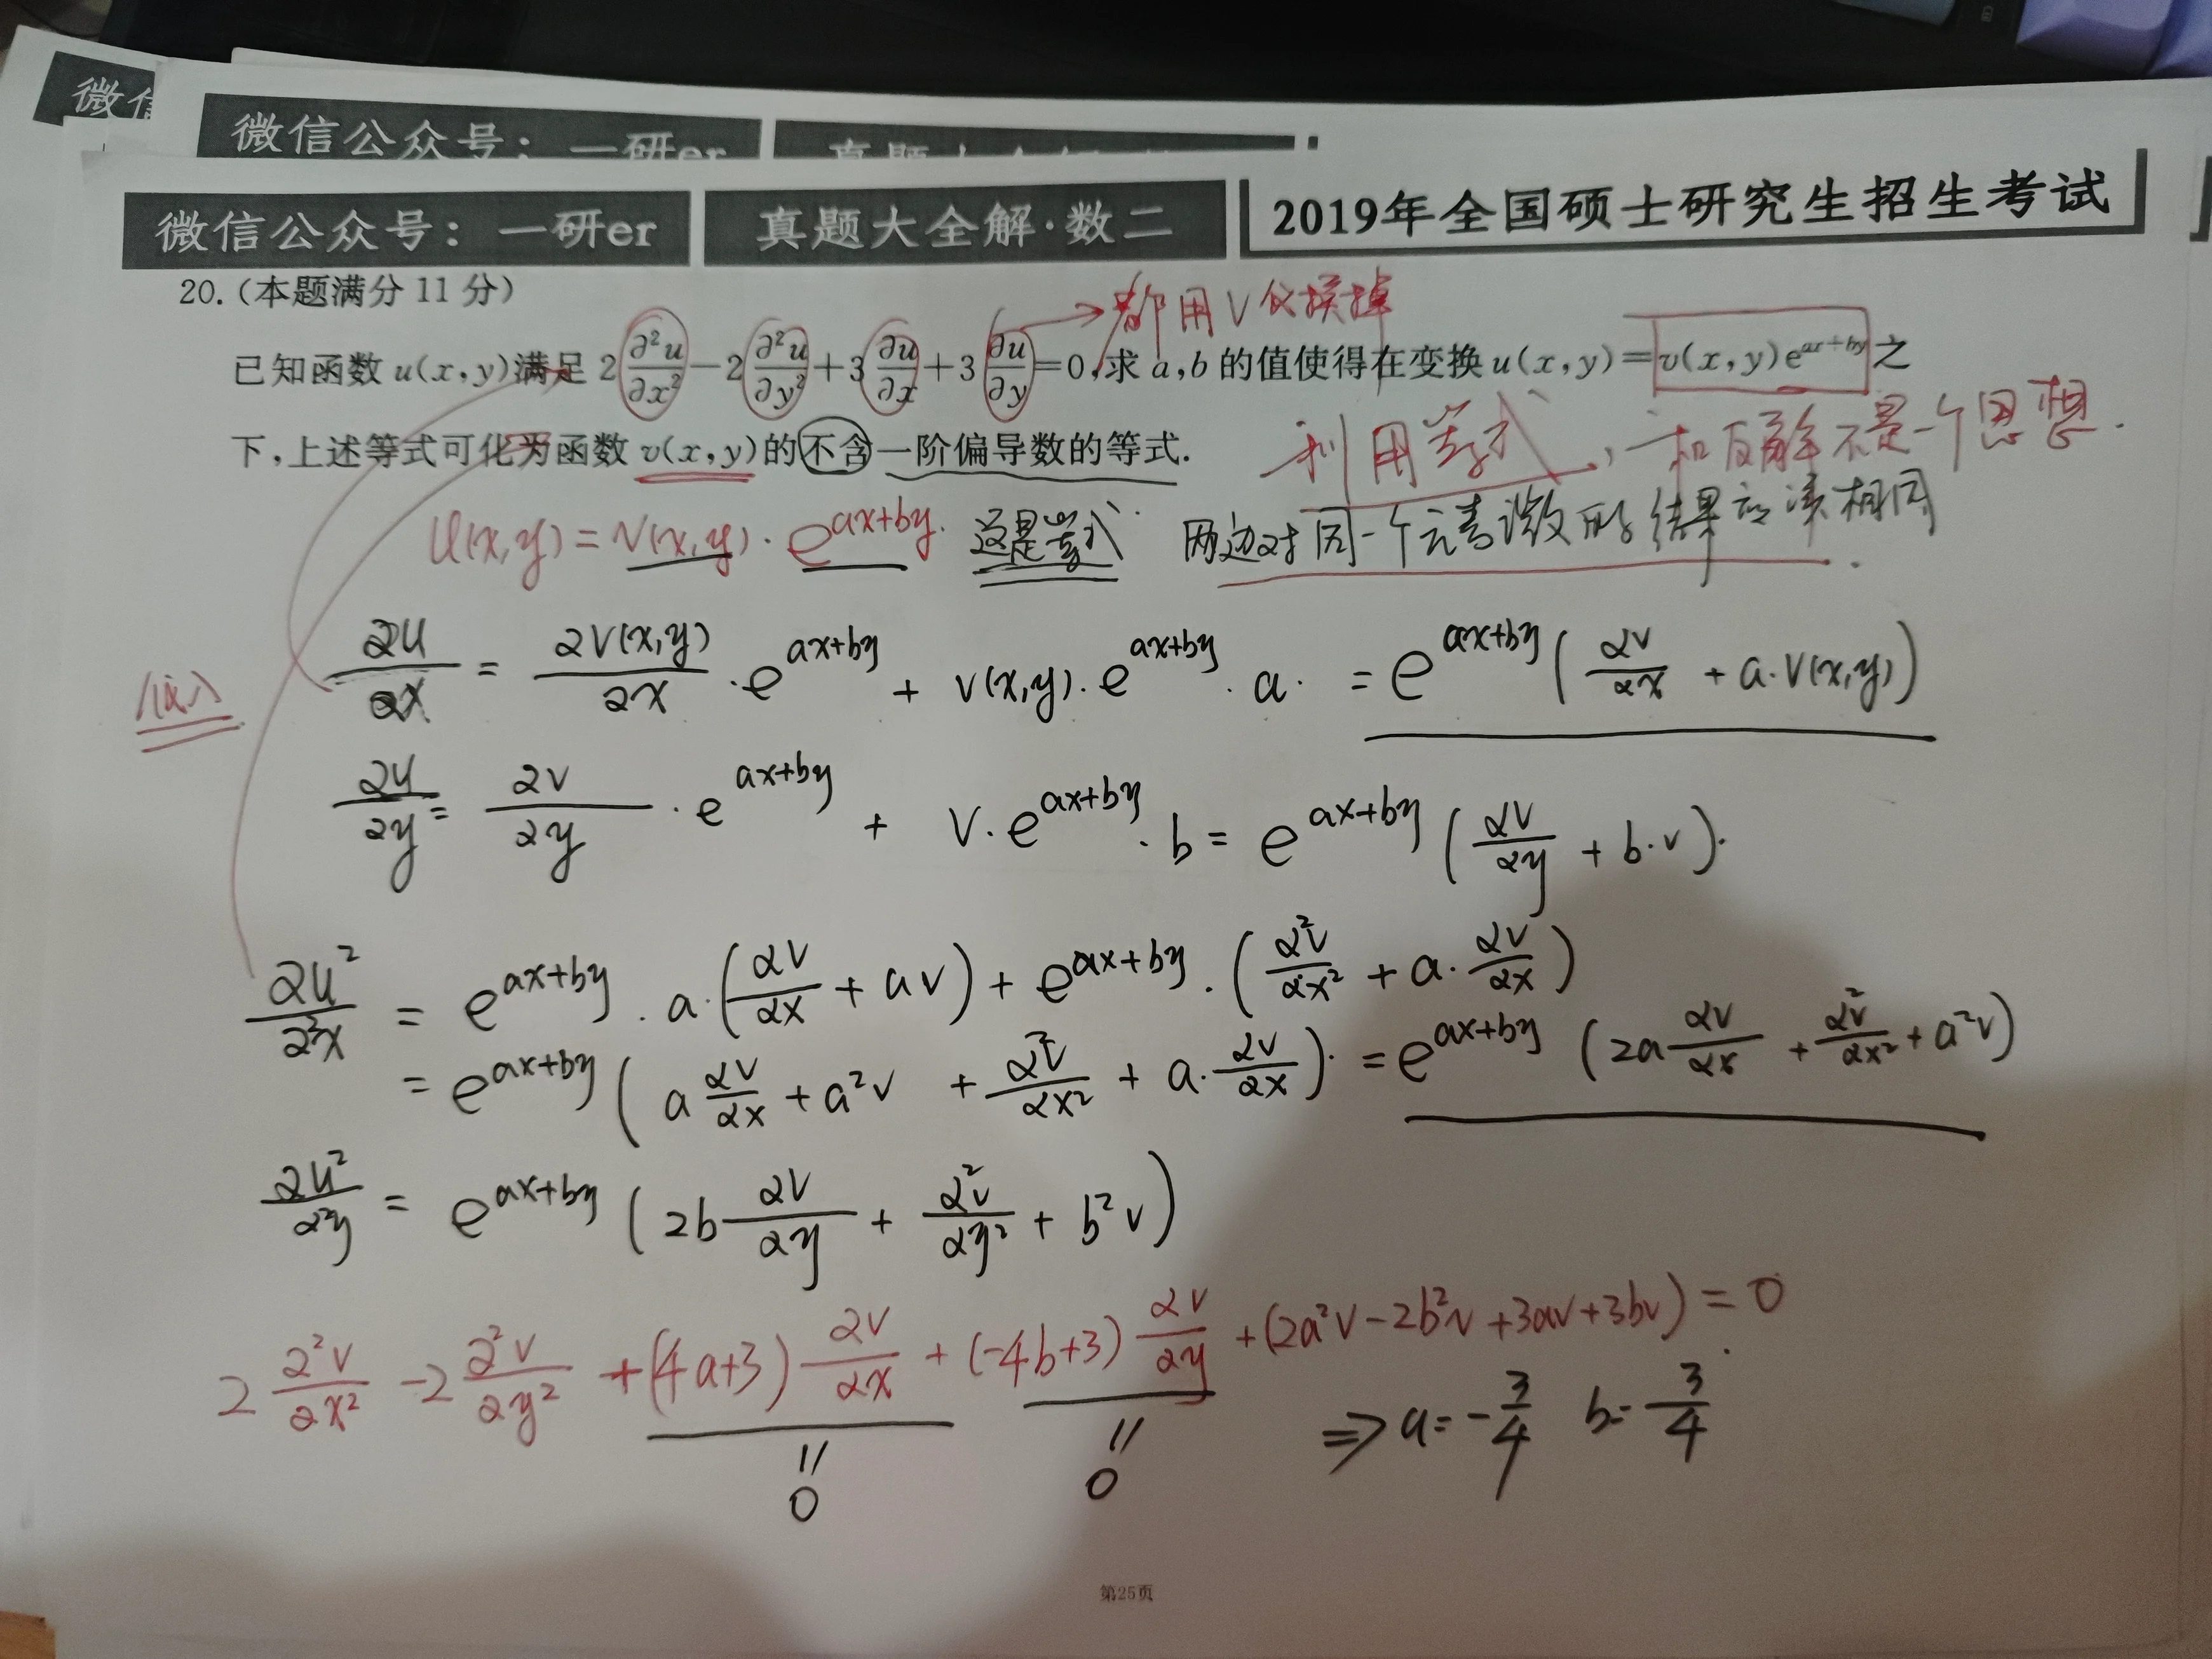 微信
微信公众号：一研er
微信公众号：一研er 真题大全解·数二 2019年全国硕士研究生招生考试
20.(本题满分 11 分)
都用V代换掉
已知函数 u(x,y)满足 2∂²u/∂x²−2∂²u/∂y²+3∂u/∂x+3∂u/∂y=0,求 a,b 的值使得在变换 u(x,y)=v(x,y)e^{ax+by}之
下,上述等式可化为函数 v(x,y)的不含一阶偏导数的等式.
利用等式，和反解不是一个思想.
U(x,y)=V(x,y)·e^{ax+by}. 这是等式 两边对同一个元素微分的结果应该相同.
∂u/∂x = ∂V(x,y)/∂x · e^{ax+by} + V(x,y)·e^{ax+by}·a· = e^{ax+by}(∂v/∂x + a·V(x,y))
∂u/∂y = ∂v/∂y · e^{ax+by} + V·e^{ax+by}·b = e^{ax+by}(∂v/∂y + b·v).
∂u²/∂²x = e^{ax+by}·a·(∂v/∂x + av) + e^{ax+by}·(∂²v/∂x² + a·∂v/∂x)
= e^{ax+by}(a∂v/∂x + a²v + ∂²v/∂x² + a·∂v/∂x)· = e^{ax+by}(2a∂v/∂x + ∂²v/∂x² + a²v)
∂u²/∂²y = e^{ax+by}(2b∂v/∂y + ∂²v/∂y² + b²v)
2∂²v/∂x² −2∂²v/∂y² +(4a+3)∂v/∂x + (−4b+3)∂v/∂y +(2a²v−2b²v+3av+3bv) = 0
=0 =0 ⇒ a=−3/4 b=3/4
第25页